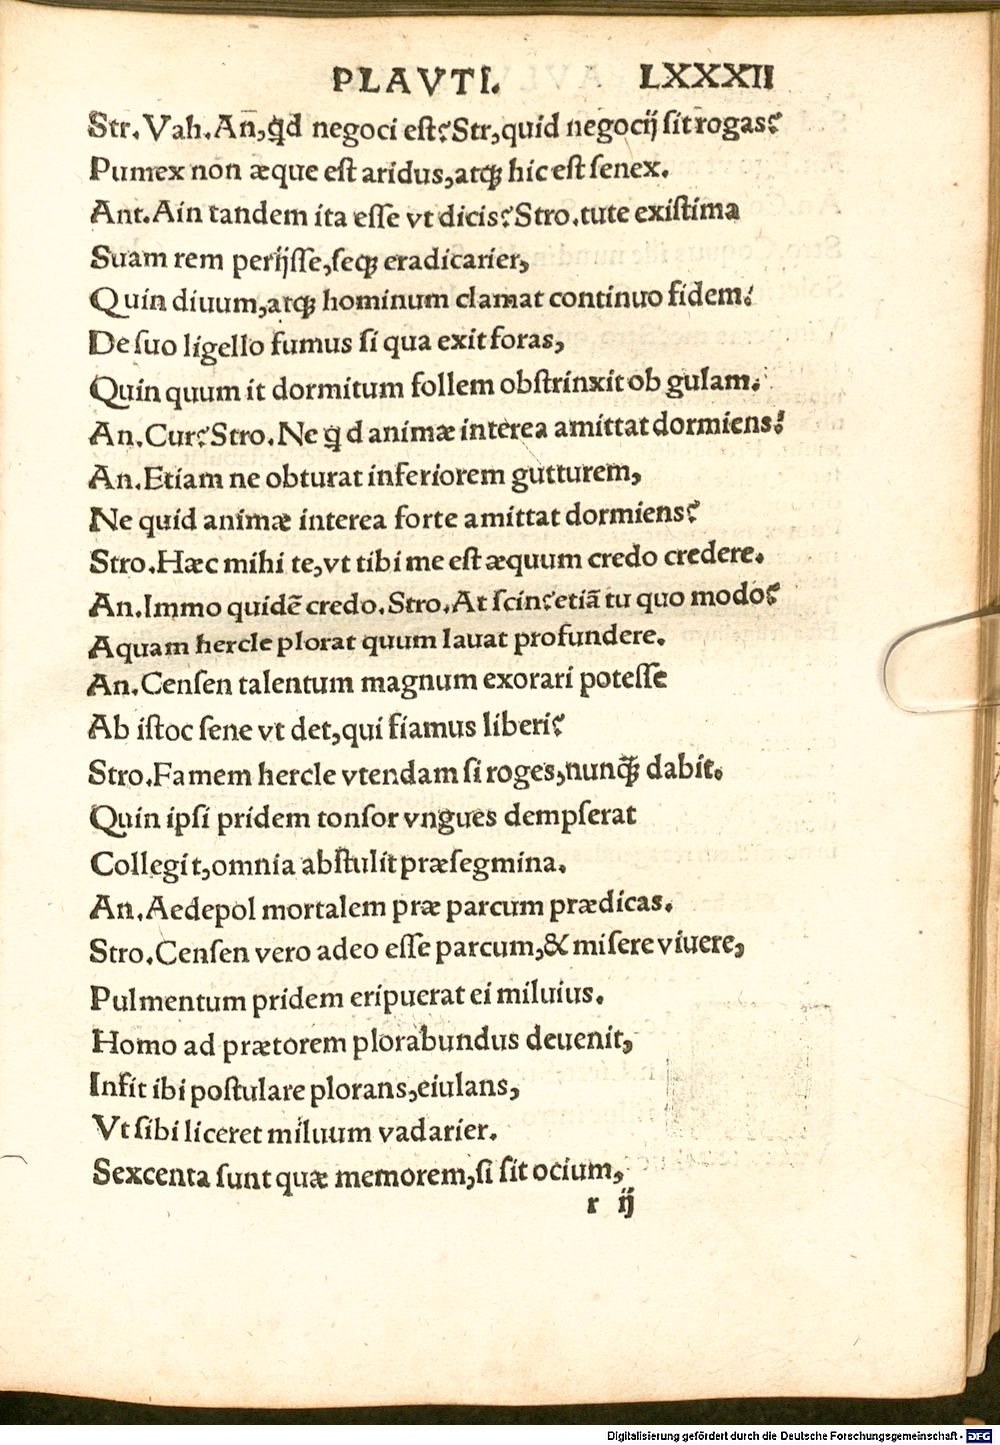 PLAVTI. LXXXII
Str. Vah. An̄, qđ negoci est? Str, quid negocij sit rogas?
Pumex non æque est aridus, atq; hic est senex.
Ant. Ain tandem ita esse vt dicis? Stro. tute existima
Suam rem perijsse, seq; eradicarier,
Quin diuum, atq; hominum clamat continuo fidem!
De suo ligello fumus si qua exit foras,
Quin quum it dormitum follem obstrinxit ob gulam.
An. Cur? Stro. Ne qd animæ interea amittat dormiens!
An. Etiam ne obturat inferiorem gutturem,
Ne quid animæ interea forte amittat dormiens?
Stro. Hæc mihi te, vt tibi me est æquum credo credere.
An. Immo quidē credo. Stro. At scin? etiā tu quo modo?
Aquam hercle plorat quum lauat profundere.
An. Censen talentum magnum exorari potesse
Ab istoc sene vt det, qui fiamus liberi?
Stro. Famem hercle vtendam si roges, nunq̃; dabit.
Quin ipsi pridem tonsor vngues dempserat
Collegit, omnia abstulit præsegmina.
An. Aedepol mortalem præ parcum prædicas.
Stro. Censen vero adeo esse parcum, & misere viuere,
Pulmentum pridem eripuerat ei miluius.
Homo ad prætorem plorabundus deuenit,
Infit ibi postulare plorans, eiulans,
Vt sibi liceret miluum vadarier.
Sexcenta sunt quæ memorem, si sit ocium,
r ij
Digitalisierung gefördert durch die Deutsche Forschungsgemeinschaft - DFG